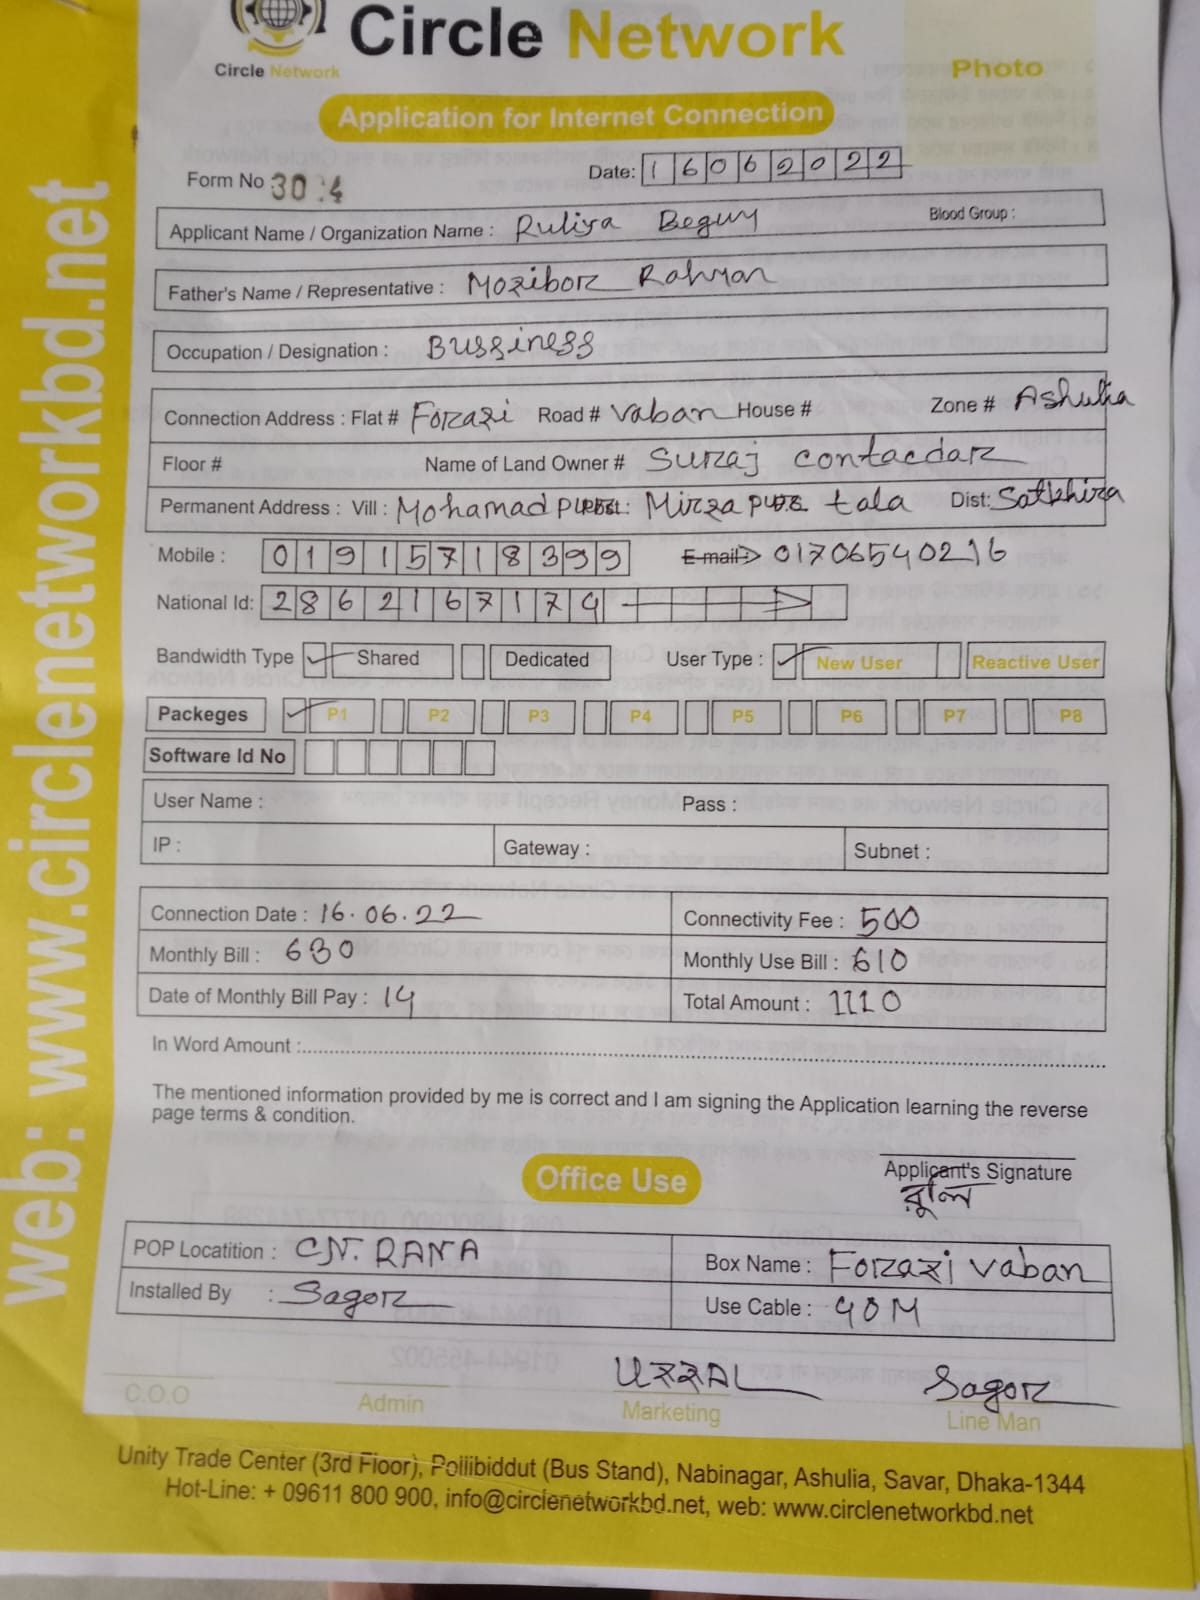 Circle Network
Circle Network
Photo
Application for Internet Connection
Form No 30 :4
Date: 16062022
Applicant Name / Organization Name : Ruliya Begum
Blood Group :
Father's Name / Representative : Mozibor Rahman
Occupation / Designation : Bussiness
Connection Address : Flat # Forazi Road # Vaban House # Zone # Ashulia
Floor # Name of Land Owner # Suraj contacdar
Permanent Address : Vill : Mohamad pur Post: Mirza pur tala Dist: Satkhira
Mobile : 01915718399 E-mail: 01706540216
National Id: 2862167174
Bandwidth Type Shared Dedicated User Type : New User Reactive User
Packeges P1 P2 P3 P4 P5 P6 P7 P8
Software Id No
User Name : Pass :
IP : Gateway : Subnet :
Connection Date : 16.06.22 Connectivity Fee : 500
Monthly Bill : 630 Monthly Use Bill : 610
Date of Monthly Bill Pay : 14 Total Amount : 1110
In Word Amount :
The mentioned information provided by me is correct and I am signing the Application learning the reverse
page terms & condition.
Applicant's Signature
রুলি
Office Use
POP Locatition : CN. RANA Box Name : Forazi vaban
Installed By : Sagor Use Cable : 90M
Sagor
C.O.O Admin Marketing Line Man
Unity Trade Center (3rd Floor), Pollibiddut (Bus Stand), Nabinagar, Ashulia, Savar, Dhaka-1344
Hot-Line: + 09611 800 900, info@circlenetworkbd.net, web: www.circlenetworkbd.net
web: www.circlenetworkbd.net